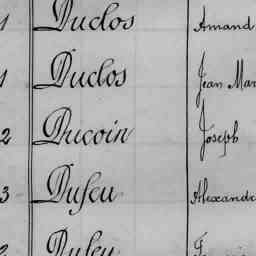 1 Duclos Amand
1 Duclos Jean Mar
2 Ducoin Joseph
3 Dufeu Alexandre
Dufeu